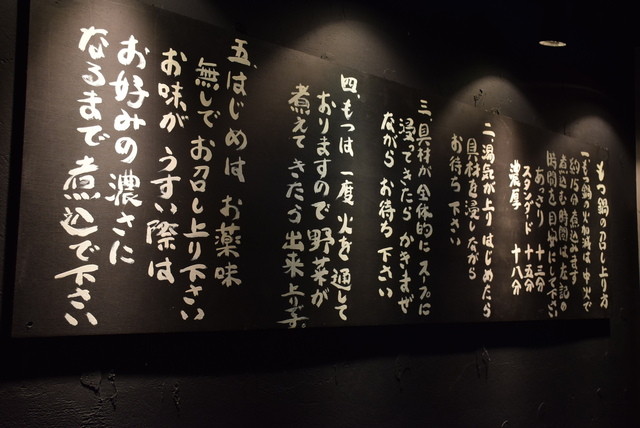 もつ鍋の召し上り方
一、もつ鍋の火加減は中火で
約 分 煮込みます
煮込む時間は左記の
時間を目安にして下さい
あっさり 十三分
スタンダード 十五分
濃厚 十八分
二、湯気が上りはじめたら
具材を浸しながら
お待ち下さい
三、具材が全体的にスープに
浸ってきたらかきまぜ
ながらお待ち下さい
四、もつは一度火を通して
おりますので野菜が
煮えてきたら出来上り
五、はじめはお薬味
無しでお召し上り下さい
お味がうすい際は
お好みの濃さに
なるまで煮込で下さい